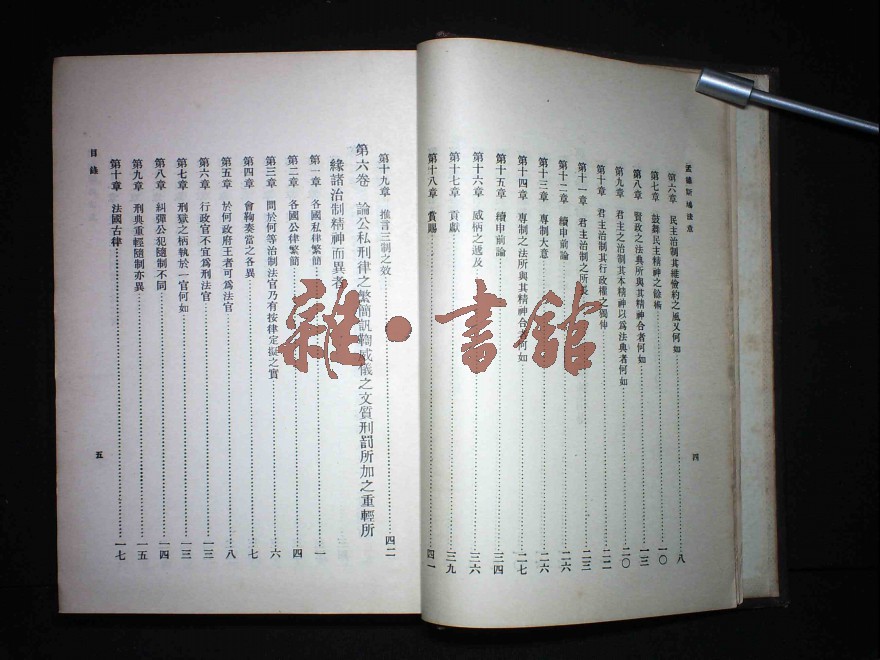 孟德斯鳩法意
第六章　民主治制其維儉約之風又何如……八
第七章　鼓舞民主精神之餘術……一〇
第八章　賢政之法典所與其精神合者何如……一三
第九章　君主之治制其本精神以為法典者何如……二〇
第十章　君主治制其行政權之獨伸……二二
第十一章　君主治制之所……二三
第十二章　續申前論……二六
第十三章　專制大意……二六
第十四章　專制之法所與其精神合者何如……二七
第十五章　續申前論……三四
第十六章　威柄之遞及……三六
第十七章　貢獻……三九
第十八章　賞賜……四一
四
第十九章　推言三制之效……四二
第六卷　論公私刑律之繁簡訊鞫威儀之文質刑罰所加之重輕所
緣諸治制精神而異者
第一章　各國私律繁簡……一
第二章　各國公律繁簡……四
第三章　問於何等治制法官乃有按律定擬之實……六
第四章　會鞫奏當之各異……七
第五章　於何政府王者可為法官……八
第六章　行政官不宜為刑法官……一三
第七章　刑獄之柄執於一官何如……一三
第八章　糾彈公犯隨制不同……一四
第九章　刑典重輕隨制亦異……一五
第十章　法國古律……一七
目錄
五
雜·書館